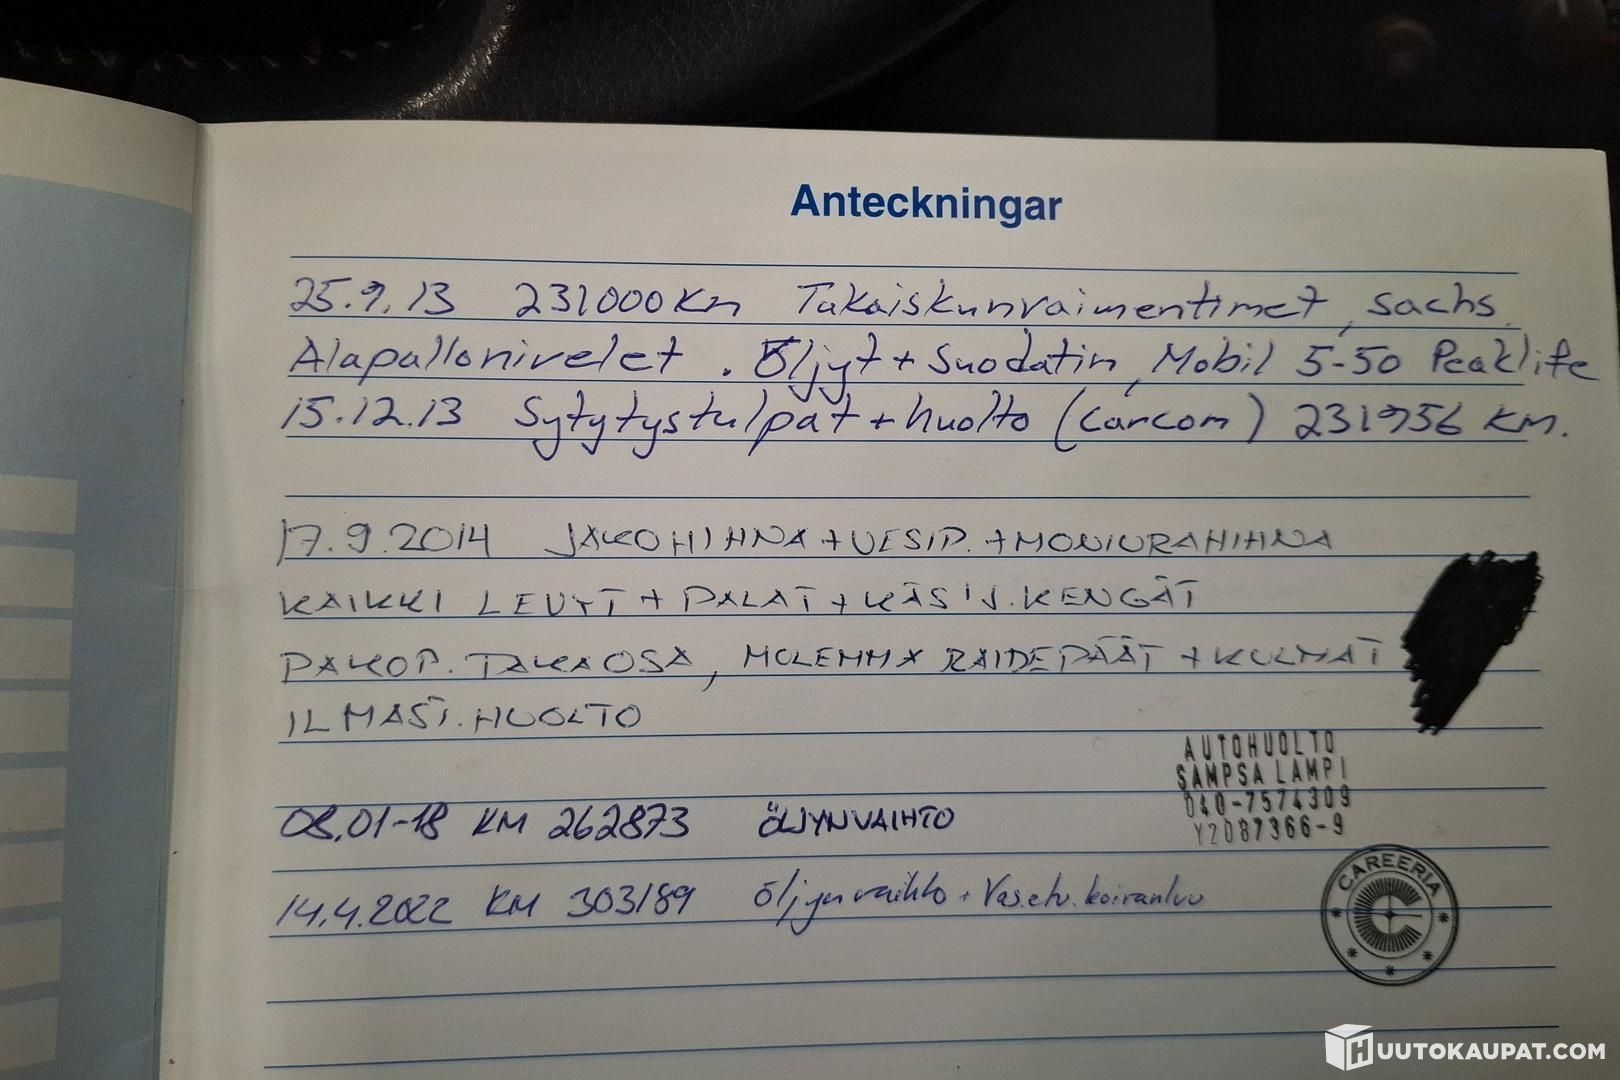 Anteckningar
25.9.13 231000 Km Takaiskunvaimentimet, sachs.
Alapallonivelet. Öljyt + Suodatin, Mobil 5-50 Peaklife
15.12.13 Sytytystulpat + huolto (Carcom) 231956 KM.
17.9.2014 JAKOHIHNA + VESIP. + MONIURAHIHNA
KAIKKI LEVYT + PALAT + KÄSIJ. KENGÄT
PAKOP. TAKAOSA, MOLEMMA RAIDEPÄÄT + KULMAT
ILMAST. HUOLTO
AUTOHUOLTO
SAMPSA LAMPI
040-7574309
Y2087366-9
08.01-18 KM 262873 ÖLJYNVAIHTO
14.4.2022 KM 303189 öljynvaihto + Vas.etu. koiranluu
CAREERIA
HUUTOKAUPAT.COM